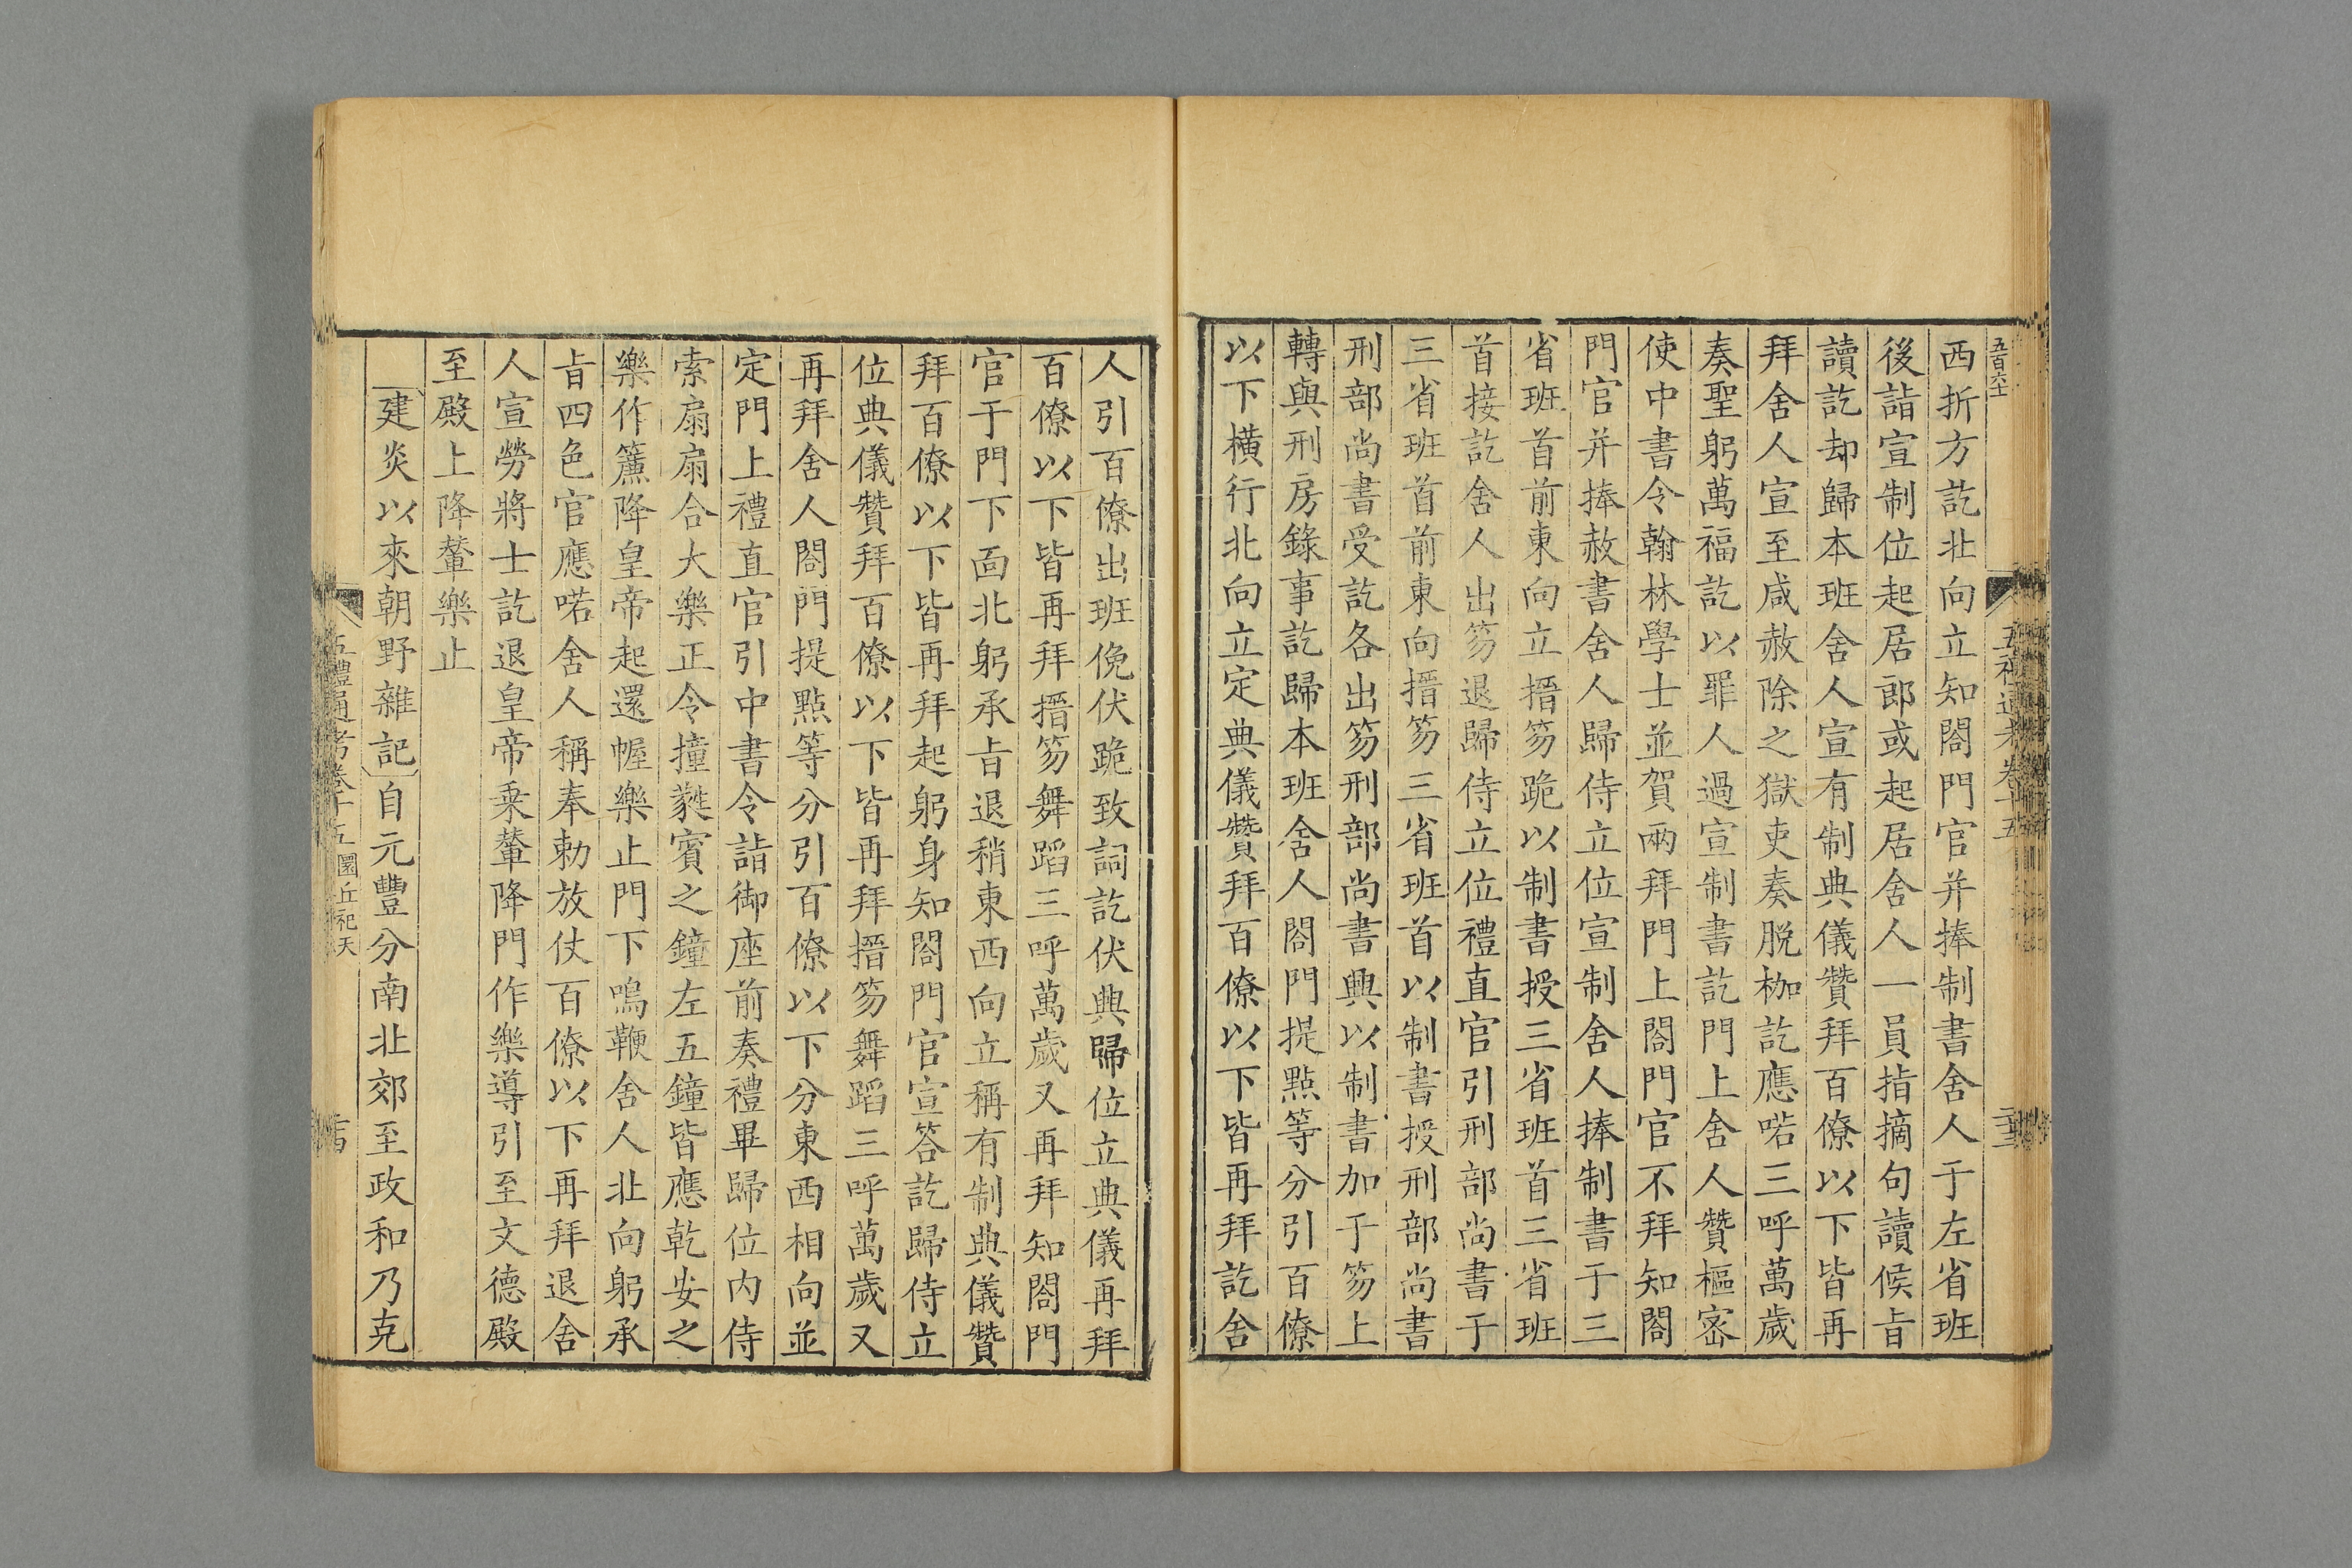 五百六十
西折方訖北向立知閤門官并捧制書舍人于左省班
後詣宣制位起居郎或起居舍人一員指摘句讀候㫖
讀訖却歸本班舍人宣有制典儀贊拜百僚以下皆再
拜舍人宣至咸赦除之獄吏奏脱枷訖應喏三呼萬歲
奏聖躬萬福訖以罪人過宣制書訖門上舍人贊樞密
使中書令翰林學士並賀兩拜門上閤門官不拜知閤
門官并捧赦書舍人歸侍立位宣制舍人捧制書于三
省班首前東向立搢笏跪以制書授三省班首三省班
首接訖舍人出笏退歸侍立位禮直官引刑部尚書于
三省班首前東向搢笏三省班首以制書授刑部尚書
刑部尚書受訖各出笏刑部尚書興以制書加于笏上
轉與刑房錄事訖歸本班舍人閤門提點等分引百僚
以下橫行北向立定典儀贊拜百僚以下皆再拜訖舍
人引百僚出班俛伏跪致詞訖伏典歸位立典儀再拜
百僚以下皆再拜搢笏舞蹈三呼萬歲又再拜知閤門
官于門下面北躬承㫖退稍東西向立稱有制典儀贊
拜百僚以下皆再拜起躬身知閤門官宣答訖歸侍立
位典儀贊拜百僚以下皆再拜搢笏舞蹈三呼萬歲又
再拜舍人閤門提點等分引百僚以下分東西相向並
定門上禮直官引中書令詣御座前奏禮畢歸位内侍
索扇扇合大樂正令撞蕤賓之鐘左五鐘皆應乾安之
樂作簾降皇帝起還幄樂止門下鳴鞭舍人北向躬承
㫖四色官應喏舍人稱奉勅放仗百僚以下再拜退舍
人宣勞將士訖退皇帝乗輦降門作樂導引至文德殿
至殿上降輦樂止
建炎以來朝野雜記自元豐分南北郊至政和乃克
五禮通考卷十五 圜丘祀天